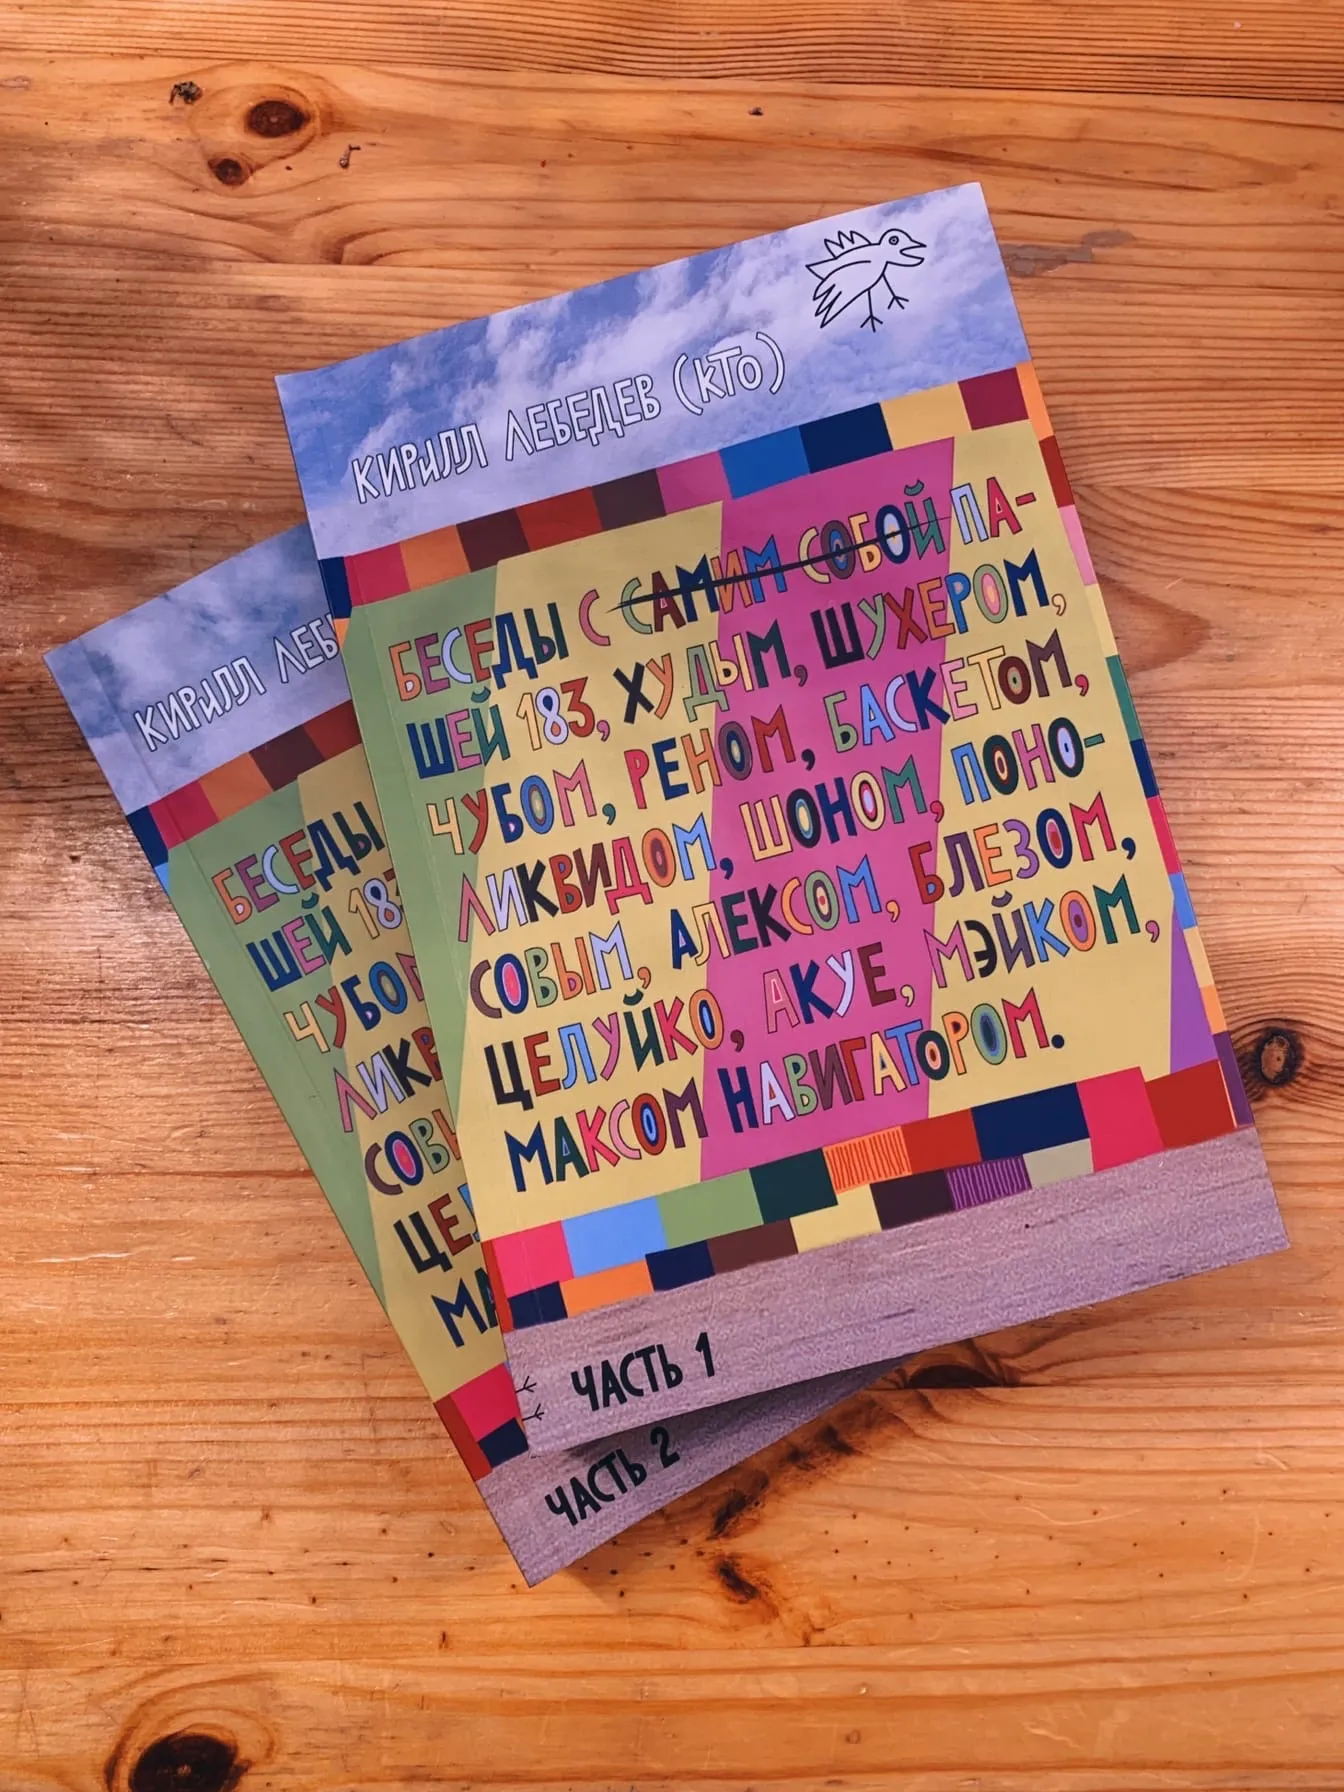 КИРИЛЛ ЛЕБЕДЕВ (КТО)
БЕСЕДЫ С САМИМ СОБОЙ ПА-
ШЕЙ 183, ХУДЫМ, ШУХЕРОМ,
ЧУБОМ, РЕНОМ, БАСКЕТОМ,
ЛИКВИДОМ, ШОНОМ, ПОНО-
СОВЫМ, АЛЕКСОМ, БЛЕЗОМ,
ЦЕЛУЙКО, АКУЕ, МЭЙКОМ,
МАКСОМ НАВИГАТОРОМ.
ЧАСТЬ 1
КИРИЛЛ ЛЕБ
БЕСЕДЫ
ШЕЙ 183
ЧУБОМ
ЛИКВ
СОВЫ
ЦЕЛ
МА
ЧАСТЬ 2